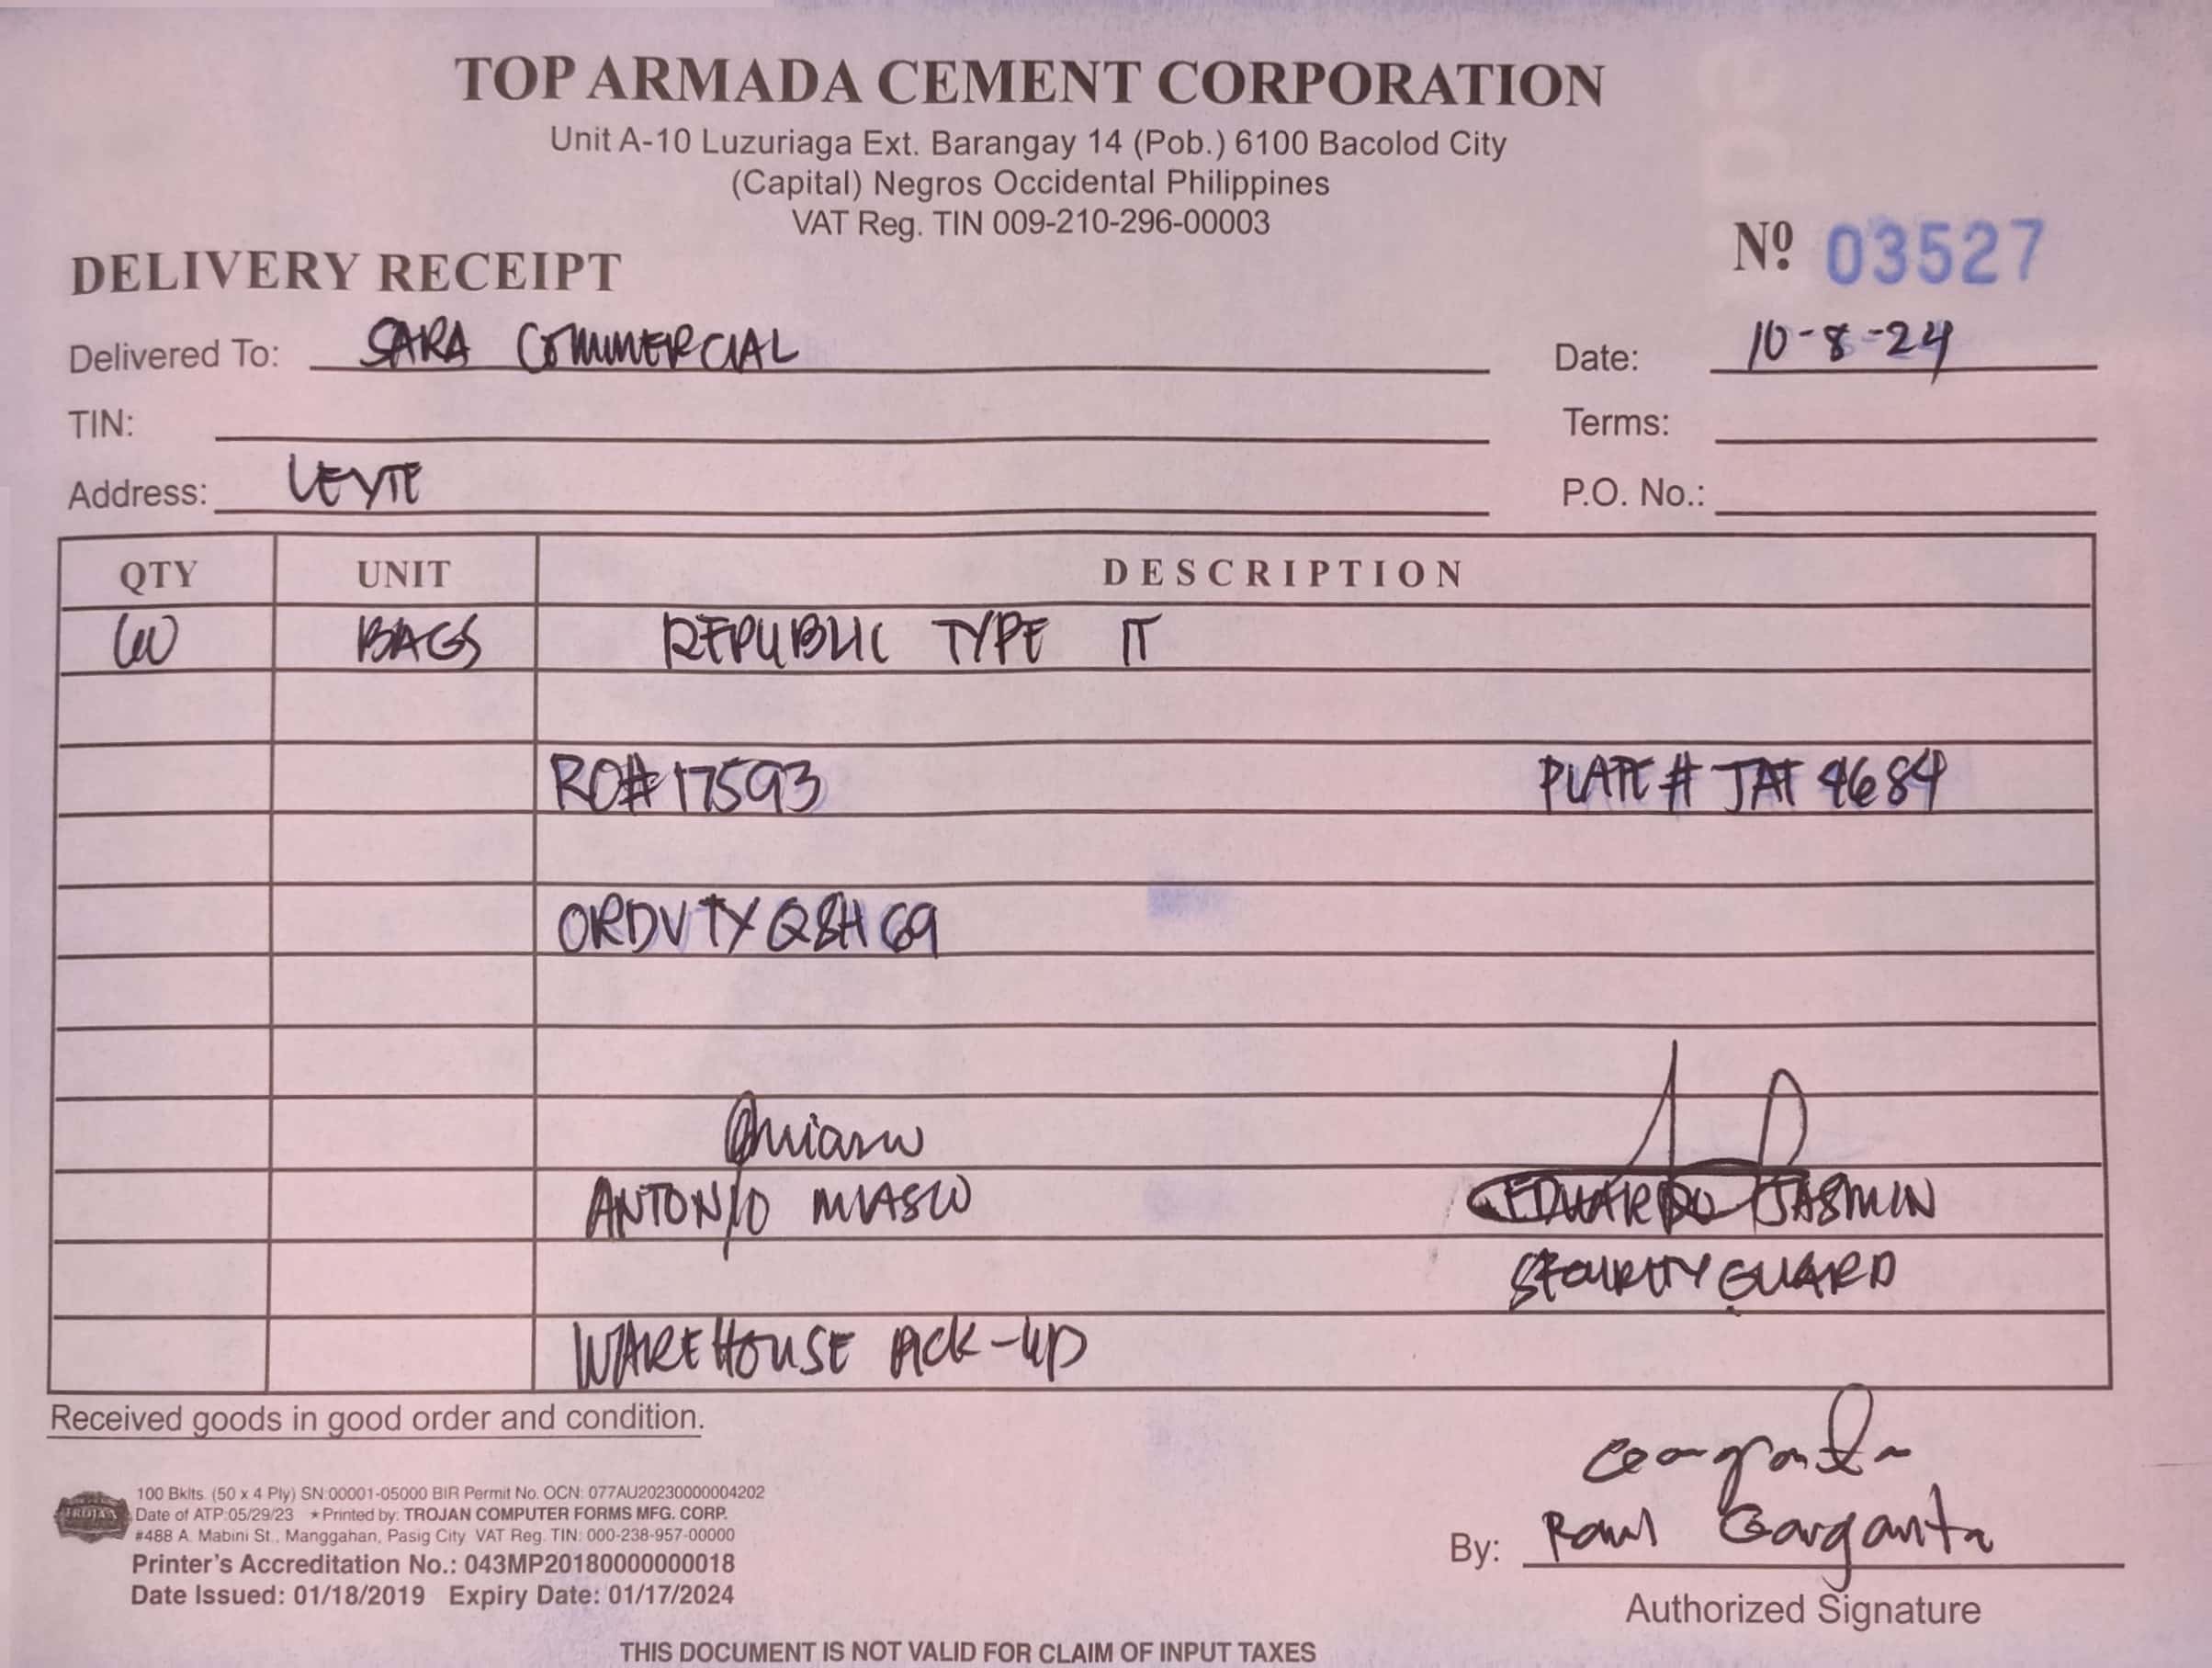 TOP ARMADA CEMENT CORPORATION
Unit A-10 Luzuriaga Ext. Barangay 14 (Pob.) 6100 Bacolod City
(Capital) Negros Occidental Philippines
VAT Reg. TIN 009-210-296-00003
DELIVERY RECEIPT Nº 03527
Delivered To: SARA COMMERCIAL Date: 10-8-24
TIN: Terms:
Address: LEYTE P.O. No.:
QTY UNIT DESCRIPTION
BAGS REPUBLIC TYPE IT
RO# 17593 PLATE # JAT 4684
ORDVTYQ8H69
ANTONIO EDUARDO JASMIN
SECURITY GUARD
WAREHOUSE PICK-UP
Received goods in good order and condition.
TROJAN
100 Bklts. (50 x 4 Ply) SN:00001-05000 BIR Permit No. OCN: 077AU20230000004202
Date of ATP:05/29/23 *Printed by: TROJAN COMPUTER FORMS MFG. CORP.
#488 A. Mabini St., Manggahan, Pasig City VAT Reg. TIN: 000-238-957-00000
Printer's Accreditation No.: 043MP20180000000018
Date Issued: 01/18/2019 Expiry Date: 01/17/2024
By: Raul Garganta
Authorized Signature
THIS DOCUMENT IS NOT VALID FOR CLAIM OF INPUT TAXES